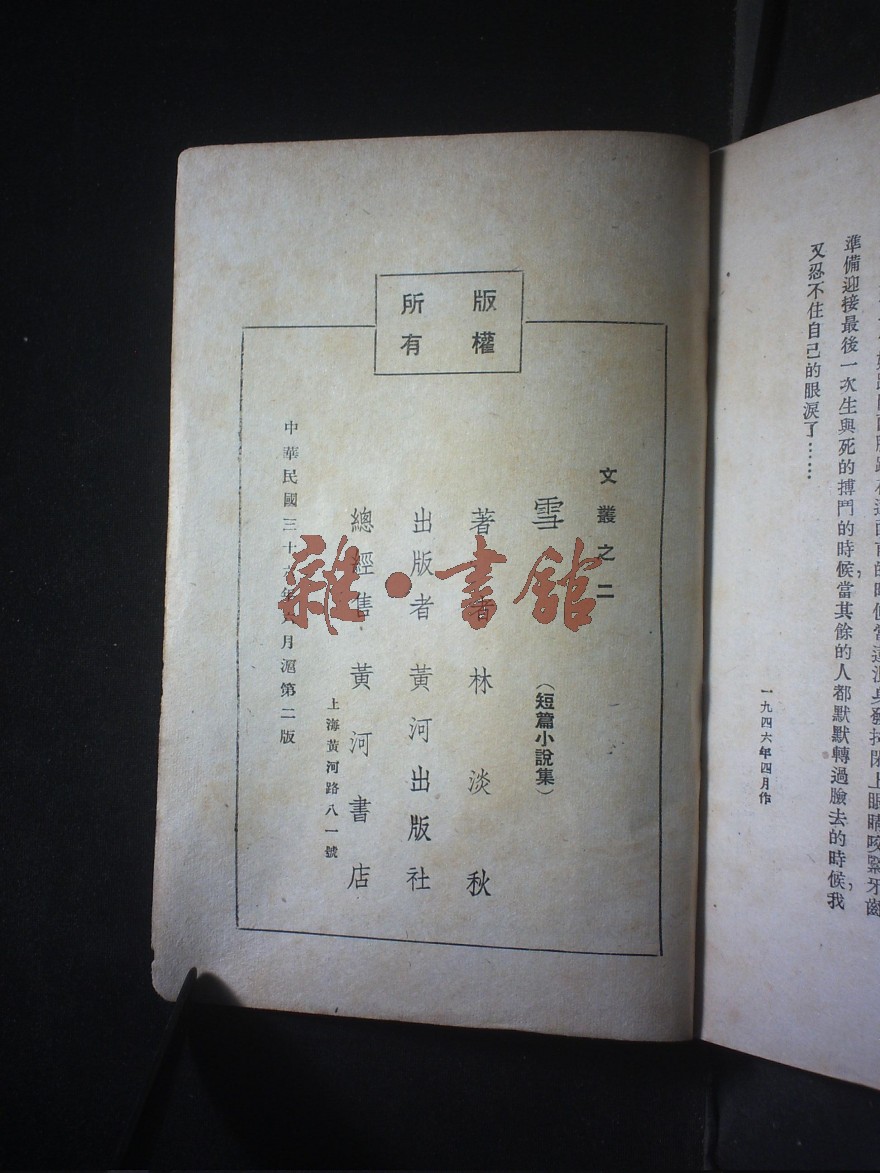 準備迎接最後一次生與死的搏鬥的時候，當其餘的人都默默轉過臉去的時候，我
又忍不住自己的眼淚了……
一九四六年四月作
版權
所有
文叢之二
雪 （短篇小說集）
著者 林淡秋
出版者 黃河出版社
總經售 黃河書店
上海黃河路八一號
中華民國三十六年 月滬第二版
雜·書館